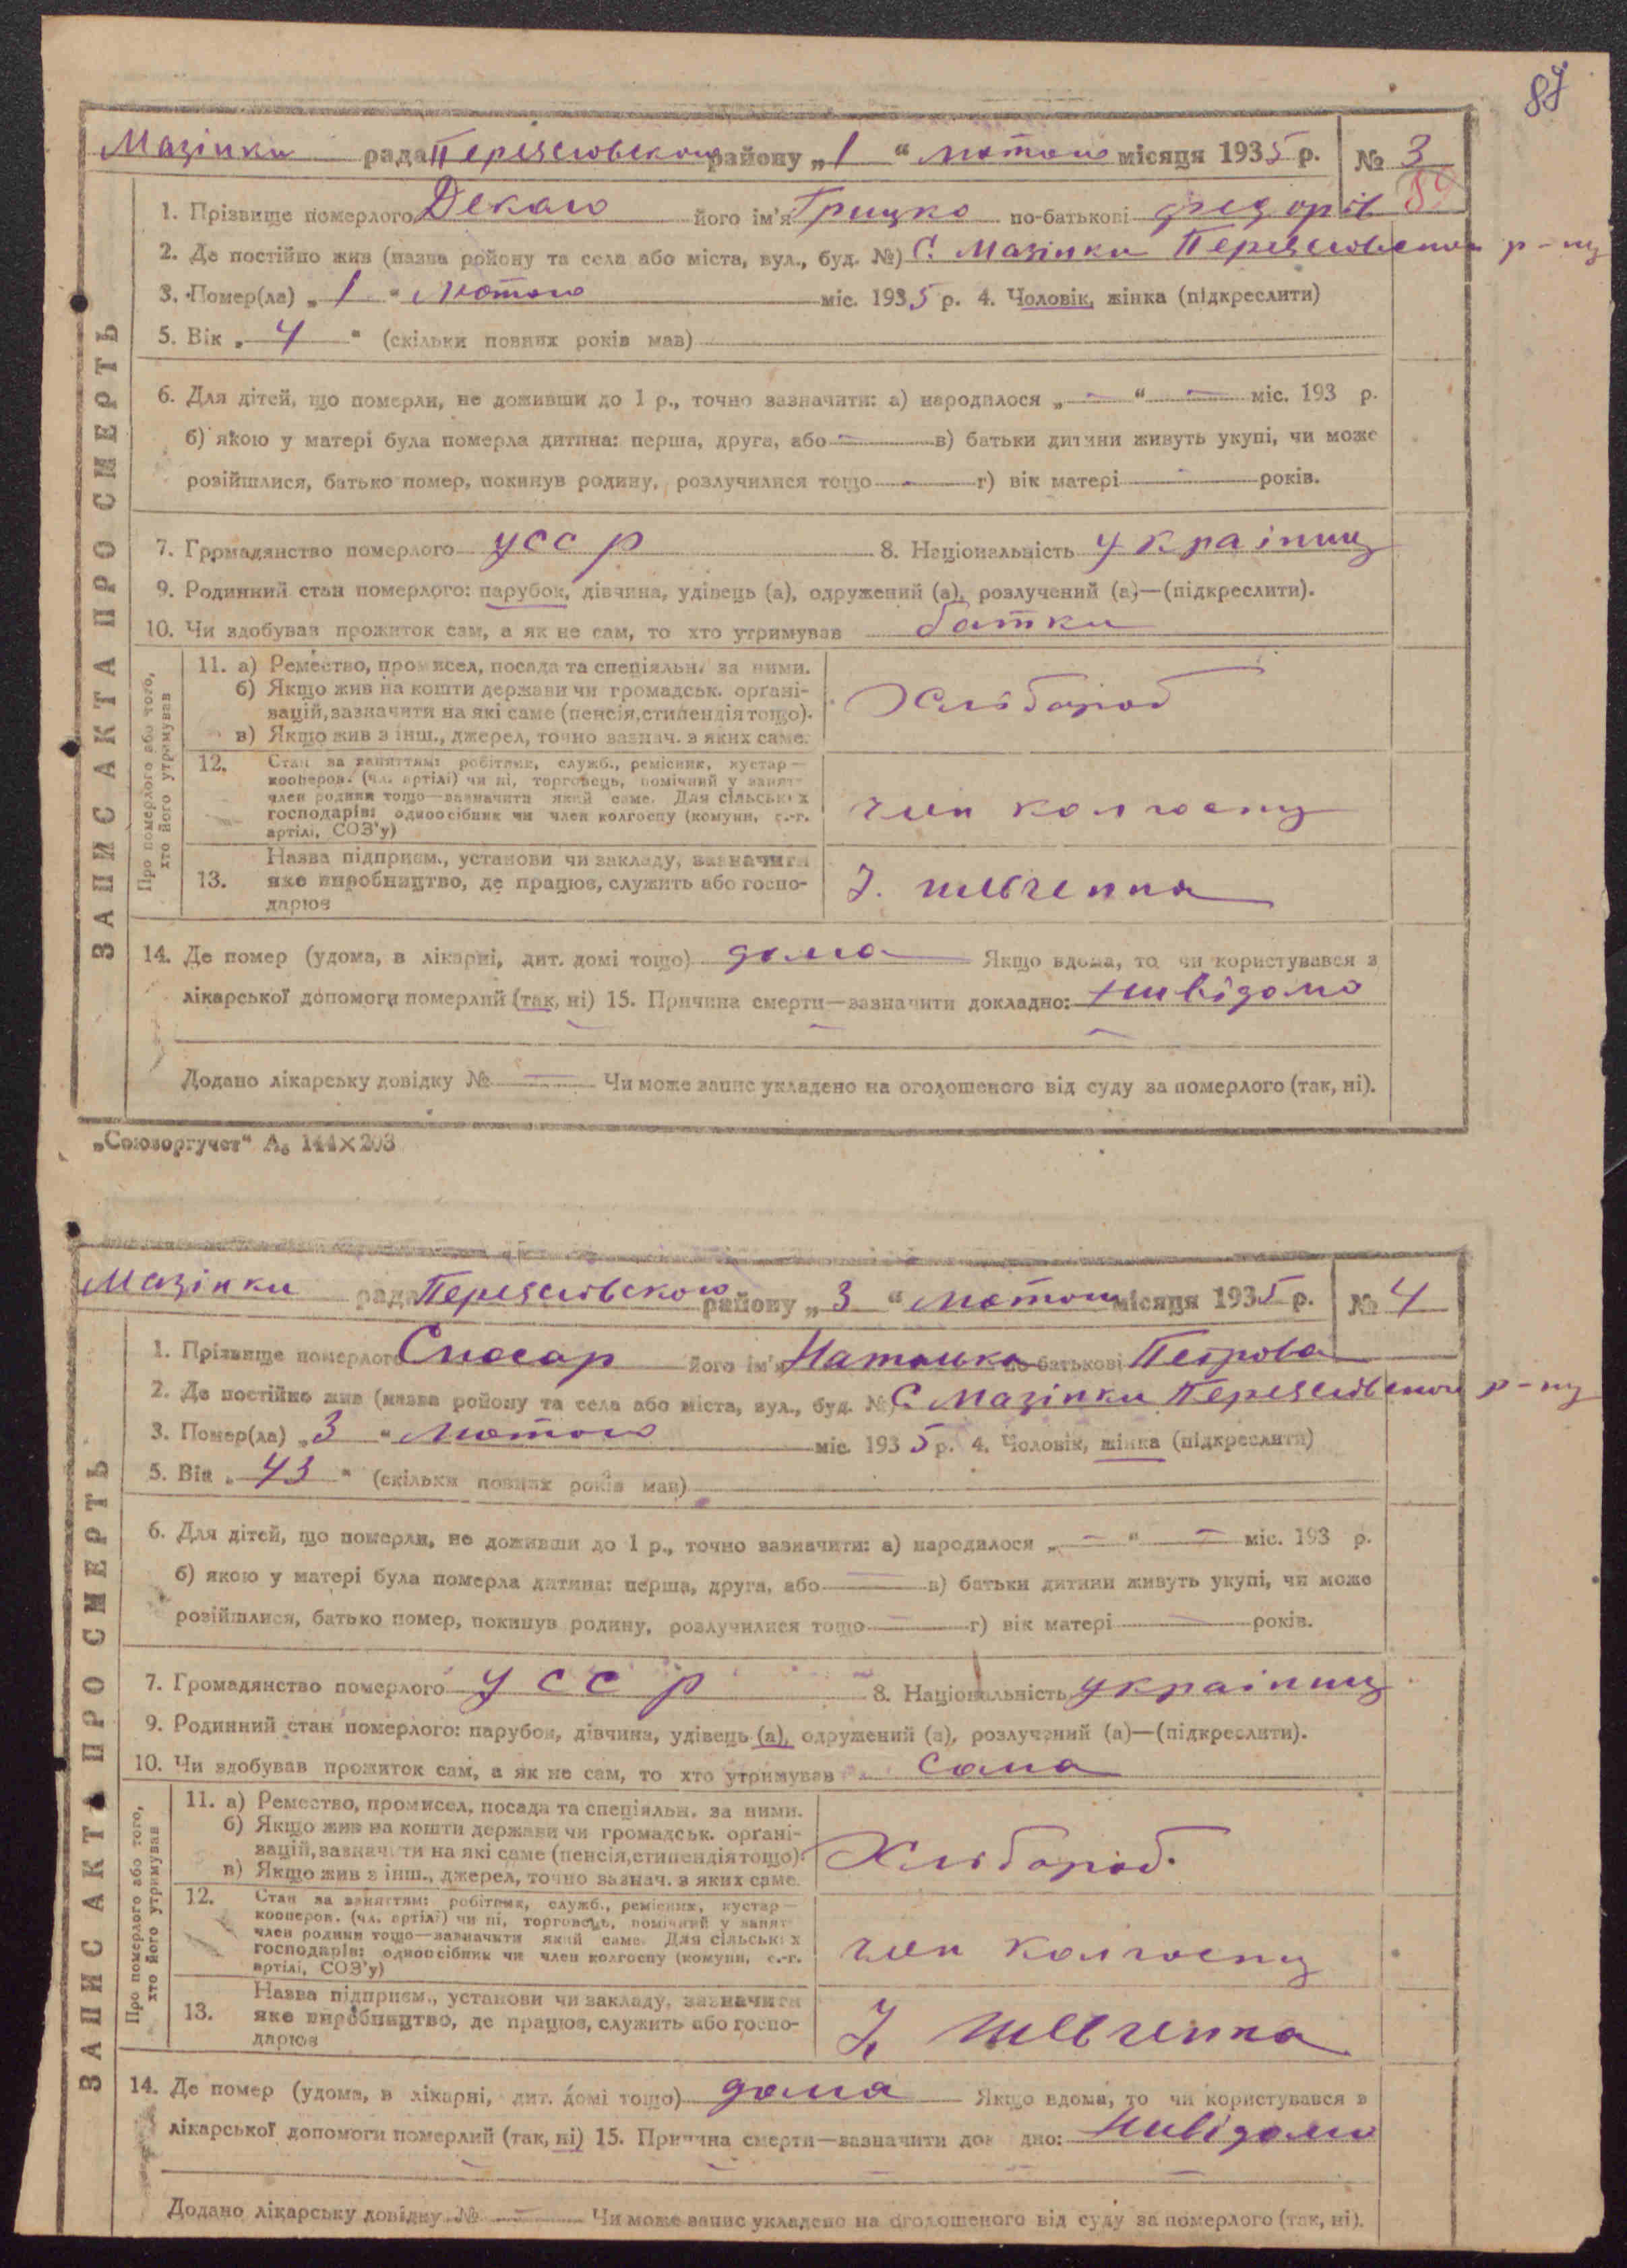 87
Мазінки рада Переяслівського району „1“ лютого місяця 1935 р. № 3
89
1. Прізвище померлого Декало його ім'я Грицко по-батькові Федорів
2. Де постійно жив (назва ройону та села або міста, вул., буд. №) С. Мазінки Переяслівского р-ну
3. Помер(ла) „1“ Лютого міс. 1935 р. 4. Чоловік, жінка (підкреслити)
5. Вік „4“ (скільки повних років мав)
6. Для дітей, що померли, не доживши до 1 р., точно зазначити: а) народилося „—“ — міс. 193 р.
б) якою у матері була померла дитина: перша, друга, або — в) батьки дитини живуть укупі, чи може
розійшлися, батько помер, покинув родину, розлучилися тощо — г) вік матері — років.
7. Громадянство померлого УССР 8. Національність українц
9. Родинний стан померлого: парубок, дівчина, удівець (а), одружений (а), розлучений (а)—(підкреслити).
10. Чи здобував прожиток сам, а як не сам, то хто утримував батки
ЗАПИС АКТА ПРО СМЕРТЬ
Про померлого або того, хто його утримував
11. а) Ремество, промисел, посада та спеціяльн. за ними.
б) Якщо жив на кошти держави чи громадськ. орґані-
зацій, зазначити на які саме (пенсія, стипендія тощо).
в) Якщо жив з інш., джерел, точно зазнач. з яких саме.
Хлібород
12. Стан за заняттям: робітник, служб., ремісник, кустар—
кооперов. (чл. артілі) чи ні, торговець, помічний у занят-
член родини тощо—зазначити який саме. Для сільських
господарів: одноосібник чи член колгоспу (комуни, с.-г.
артілі, СОЗ'у)
член колгоспу
13. Назва підприєм., установи чи закладу, зазначити
яке виробництво, де працює, служить або госпо-
дарює
І. шевченка
14. Де помер (удома, в лікарні, дит. домі тощо) дома Якщо вдома, то чи користувався з
лікарської допомоги померлий (так, ні) 15. Причина смерти—зазначити докладно: нивідомо
Додано лікарську довідку № — Чи може запис укладено на оголошеного від суду за померлого (так, ні).
„Союзоргучет“ А₆ 144×203
Мазінки рада Переяслівского району „3“ лютого місяця 1935 р. № 4
1. Прізвище померлого Слюсар його ім'я Наталька по-батькові Петрова
2. Де постійно жив (назва ройону та села або міста, вул., буд. №) С Мазінки Переяслівского р-ну
3. Помер(ла) „3“ Лютого міс. 1935 р. 4. Чоловік, жінка (підкреслити)
5. Вік „43“ (скільки повних років мав)
6. Для дітей, що померли, не доживши до 1 р., точно зазначити: а) народилося „—“ — міс. 193 р.
б) якою у матері була померла дитина: перша, друга, або — в) батьки дитини живуть укупі, чи може
розійшлися, батько помер, покинув родину, розлучилися тощо — г) вік матері — років.
7. Громадянство померлого УССР 8. Національність українц
9. Родинний стан померлого: парубок, дівчина, удівець (а), одружений (а), розлучений (а)—(підкреслити).
10. Чи здобував прожиток сам, а як не сам, то хто утримував сама
ЗАПИС АКТА ПРО СМЕРТЬ
Про померлого або того, хто його утримував
11. а) Ремество, промисел, посада та спеціяльн. за ними.
б) Якщо жив на кошти держави чи громадськ. орґані-
зацій, зазначити на які саме (пенсія, стипендія тощо).
в) Якщо жив з інш., джерел, точно зазнач. з яких саме.
Хлібороб
12. Стан за заняттям: робітник, служб., ремісник, кустар—
кооперов. (чл. артілі) чи ні, торговець, помічний у занят-
член родини тощо—зазначити який саме. Для сільських
господарів: одноосібник чи член колгоспу (комуни, с.-г.
артілі, СОЗ'у)
член колгоспу
13. Назва підприєм., установи чи закладу, зазначити
яке виробництво, де працює, служить або госпо-
дарює
І. Шевченка
14. Де помер (удома, в лікарні, дит. домі тощо) дома Якщо вдома, то чи користувався з
лікарської допомоги померлий (так, ні) 15. Причина смерти—зазначити докладно: нивідомо
Додано лікарську довідку № — Чи може запис укладено на оголошеного від суду за померлого (так, ні).